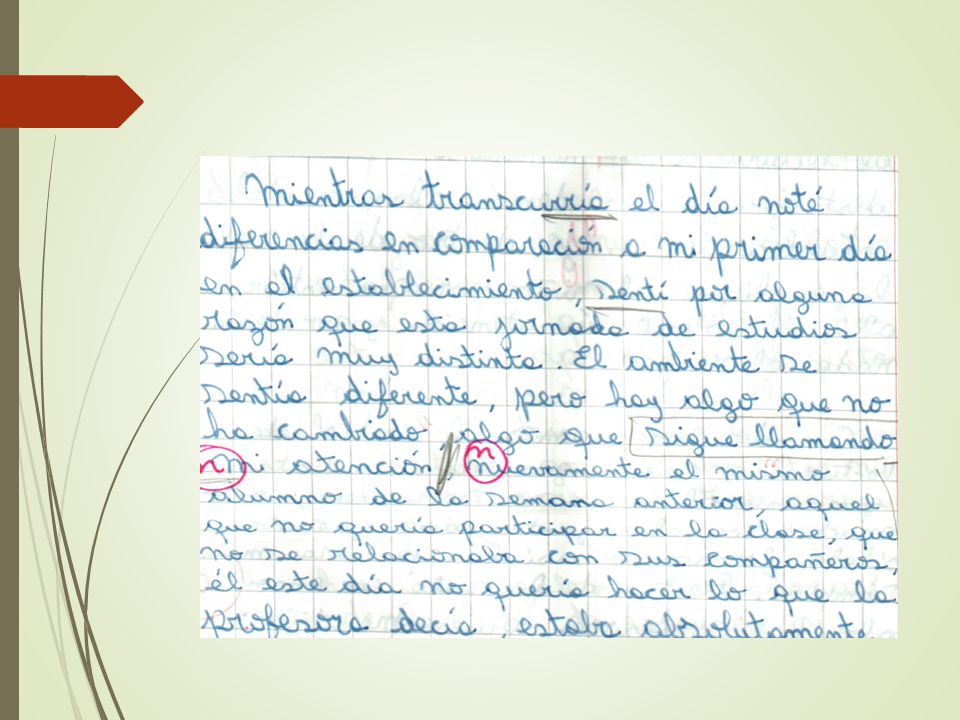 Mientras transcurría el día noté
diferencias en comparación a mi primer día
en el establecimiento, sentí por alguna
razón que esta jornada de estudios
sería muy distinta. El ambiente se
sentía diferente, pero hay algo que no
ha cambiado, algo que sigue llamando
mi atención, nuevamente el mismo
alumno de la semana anterior, aquel
que no quería participar en la clase, que
no se relacionaba con sus compañeros,
él este día no quería hacer lo que la
profesora decía, estaba absolutamente